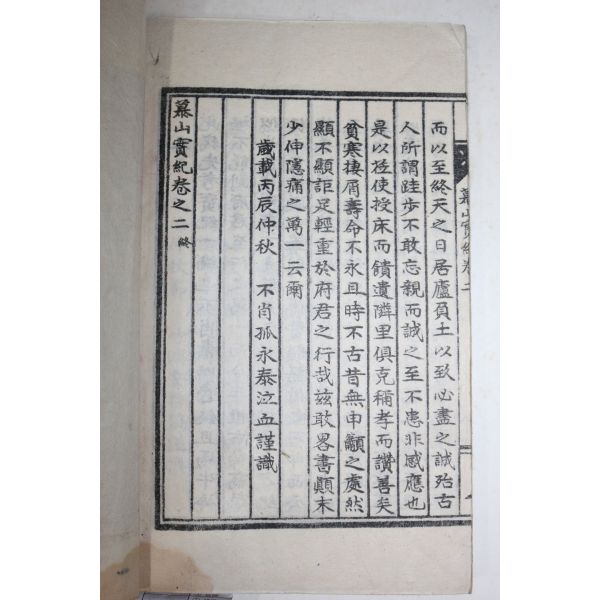 而以至終天之日居廬負土以致必盡之誠殆古
人所謂跬步不敢忘親而誠之至不患非感應也
是以徃使授床而饋遺隣里俱克稱孝而讚善矣
貧寒棲屑壽命不永且時不古昔無申籲之處然
顯不顯詎足輕重於府君之行哉玆敢畧書顚末
少伸隱痛之萬一云爾
歲載丙辰仲秋 不肖孤永泰泣血謹識
山實紀卷之二 終
山實紀卷二